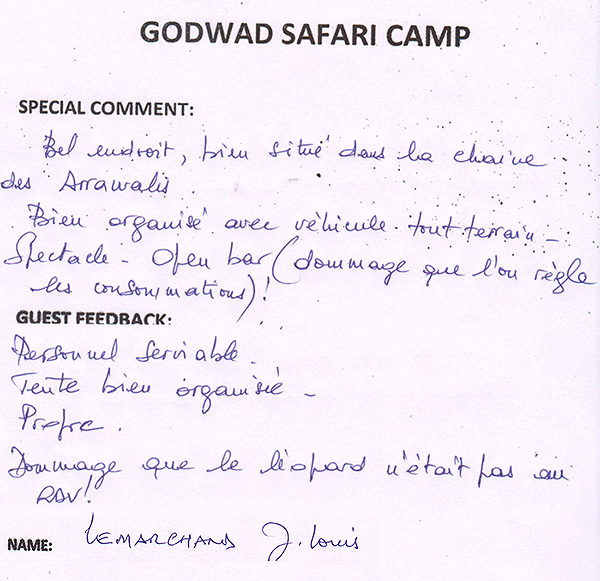 GODWAD SAFARI CAMP
SPECIAL COMMENT:
Bel endroit, bien situé dans la chaine
des Arrawalis.
Bien organisé avec véhicule tout terrain -
Spectacle - Open bar (dommage que l'on règle
les consommations)!
GUEST FEEDBACK:
Personnel serviable.
Tente bien organisée -
Propre.
Dommage que le léopard n'était pas au
RDV!
NAME: LEMARCHAND J. Louis